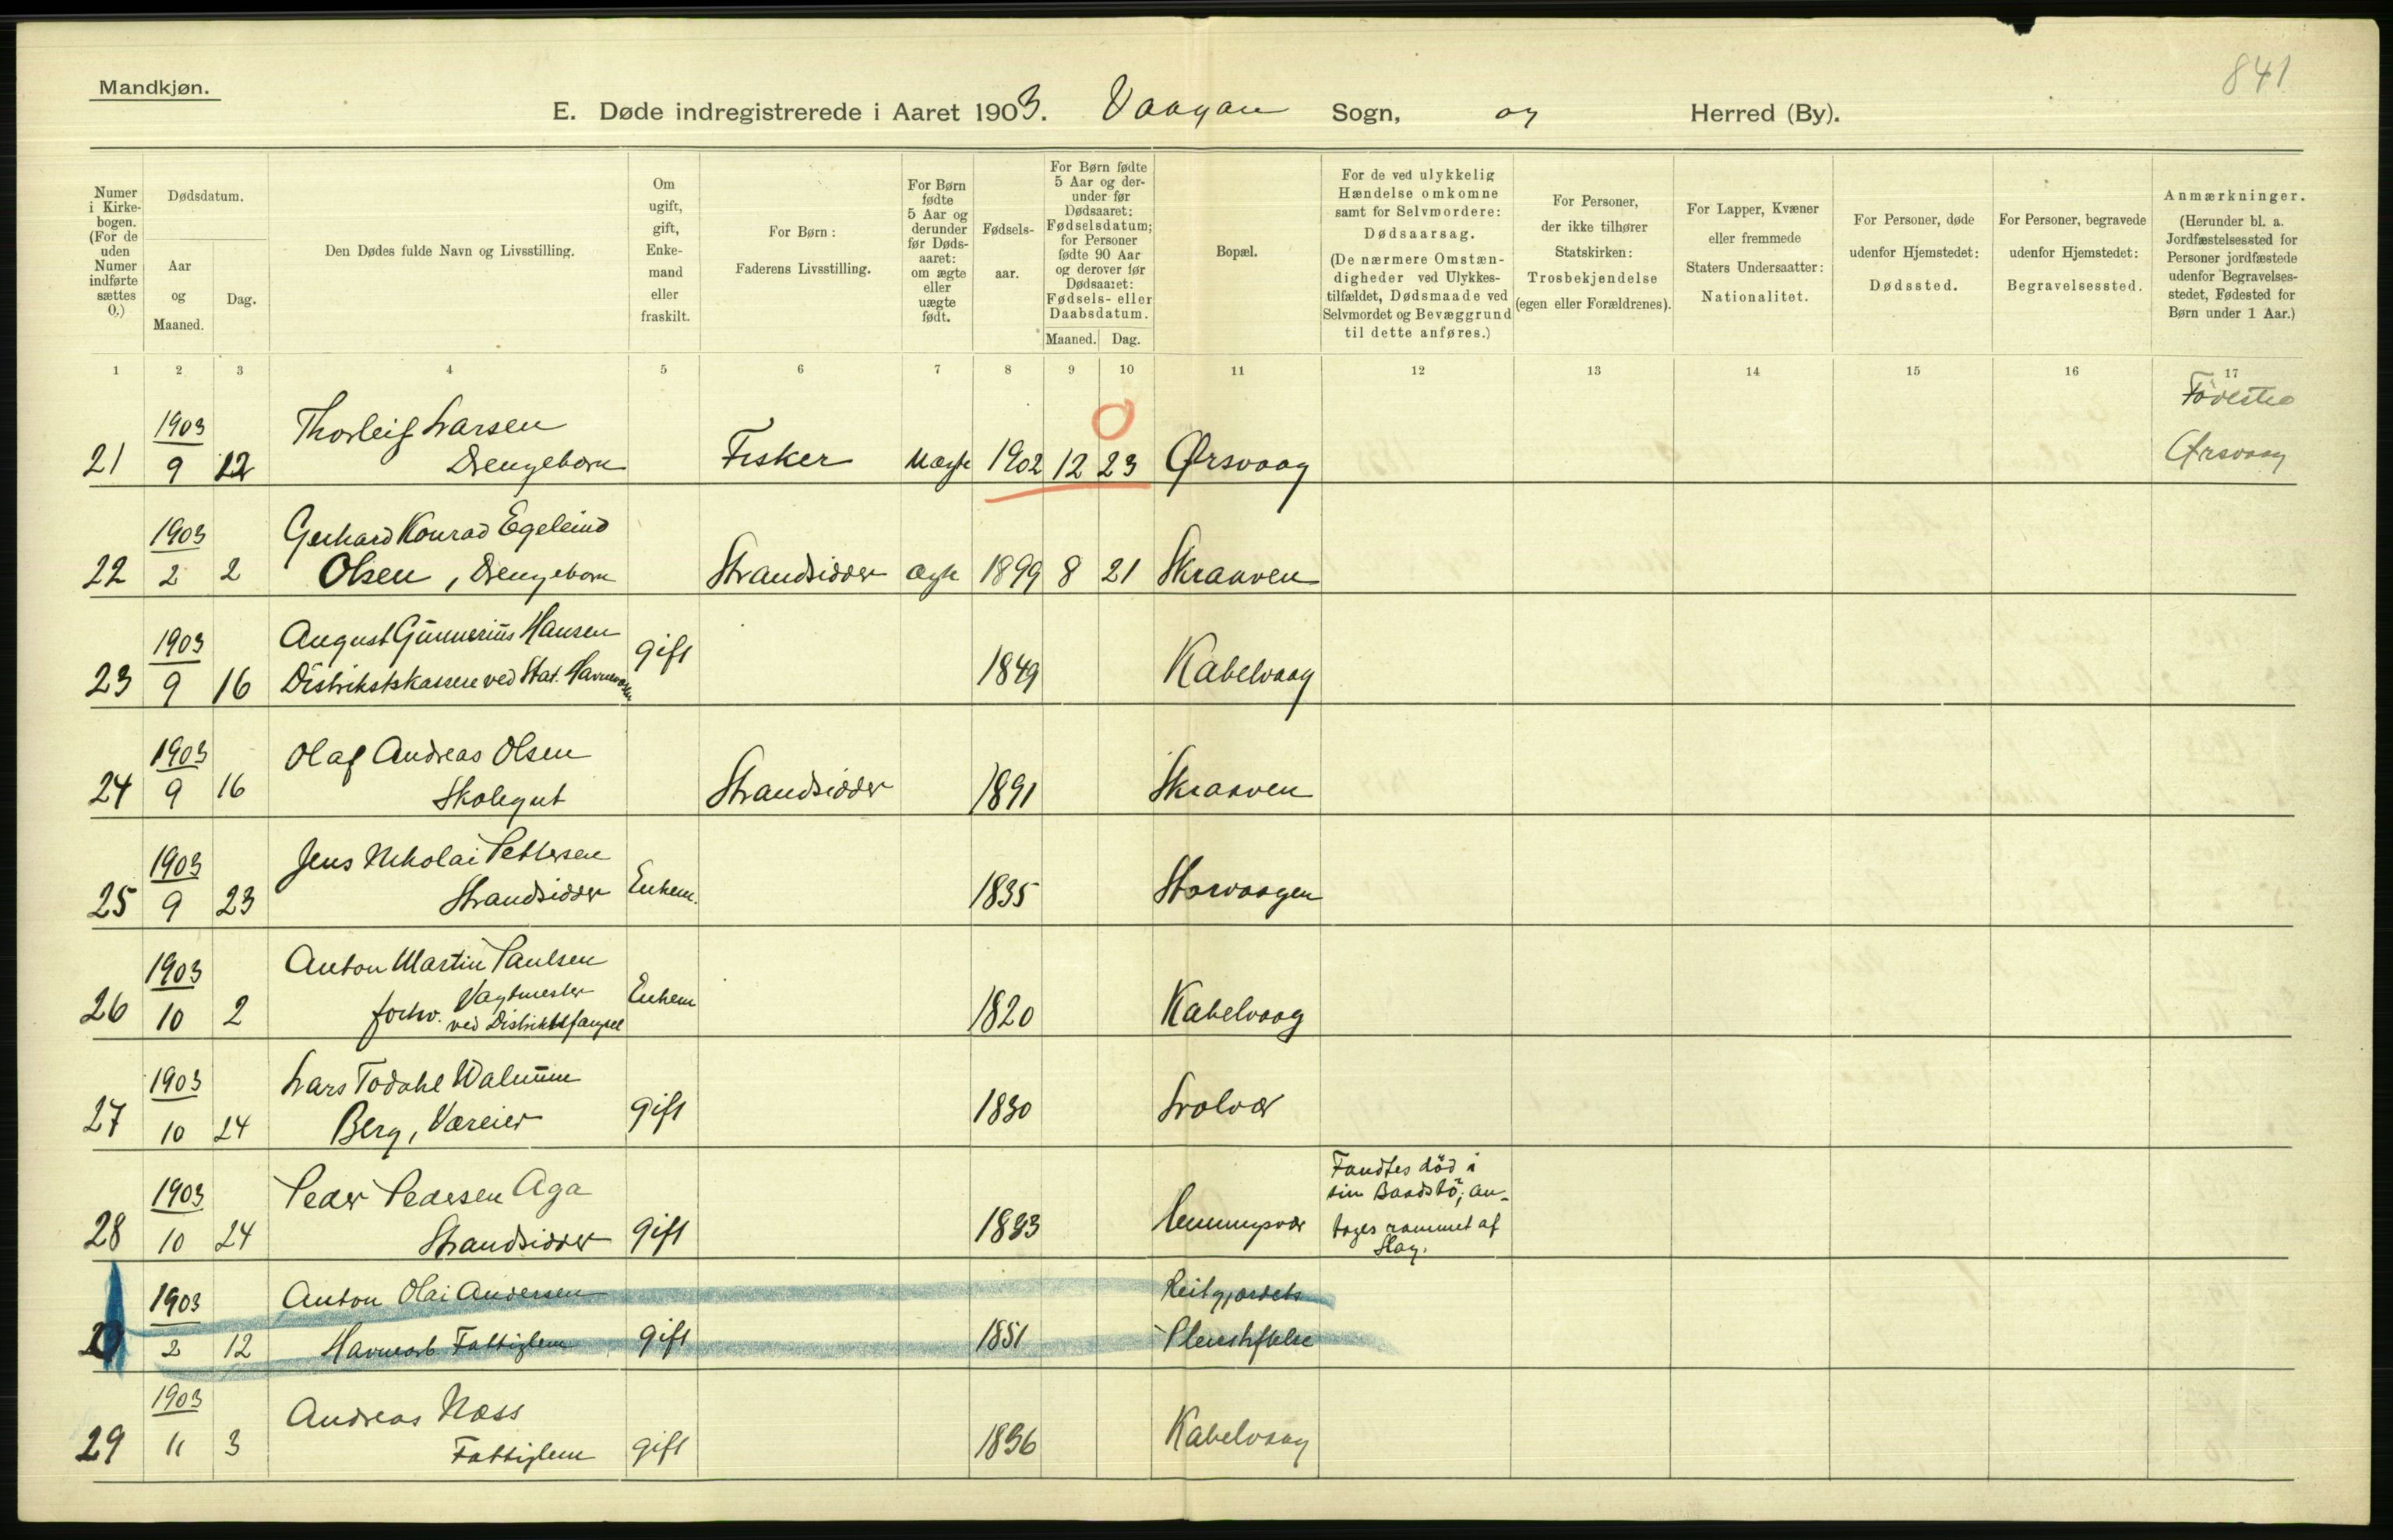 841
Mandkjøn.
E. Døde indregistrerede i Aaret 1903. Vaagan Sogn, og Herred (By).
Numer
i Kirke-
bogen.
(For de
uden
Numer
indførte
sættes
0.)
Dødsdatum.
Aar
og
Maaned.
Dag.
Den Dødes fulde Navn og Livsstilling.
Om
ugift,
gift,
Enke-
mand
eller
fraskilt.
For Børn:
Faderens Livsstilling.
For Børn
fødte
5 Aar og
derunder
før Døds-
aaret:
om ægte
eller
uægte
født.
Fødsels-
aar.
For Børn fødte
5 Aar og der-
under før
Dødsaaret:
Fødselsdatum;
for Personer
fødte 90 Aar
og derover før
Dødsaaret:
Fødsels- eller
Daabsdatum.
Maaned. Dag.
Bopæl.
For de ved ulykkelig
Hændelse omkomne
samt for Selvmordere:
Dødsaarsag.
(De nærmere Omstæn-
digheder ved Ulykkes-
tilfældet, Dødsmaade ved
Selvmordet og Bevæggrund
til dette anføres.)
For Personer,
der ikke tilhører
Statskirken:
Trosbekjendelse
(egen eller Forældrenes).
For Lapper, Kvæner
eller fremmede
Staters Undersaatter:
Nationalitet.
For Personer, døde
udenfor Hjemstedet:
Dødssted.
For Personer, begravede
udenfor Hjemstedet:
Begravelsessted.
Anmærkninger.
(Herunder bl. a.
Jordfæstelsessted for
Personer jordfæstede
udenfor Begravelses-
stedet, Fødested for
Børn under 1 Aar.)
1 2 3 4 5 6 7 8 9 10 11 12 13 14 15 16 17
1903 Thorleif Larsen 0 Födested
21 9 12 Drengebarn Fisker Uægte 1902 12 23 Ørsvaag Ørsvaag
1903 Gerhard Konrad Egeleind
22 2 2 Olsen, Drengebarn Strandsidder Ægte 1899 8 21 Skraaven
1903 August Günnerius Hansen gift
23 9 16 Distriktskasserer ved Stat. Havnevæsen 1849 Kabelvaag
1903 Olaf Andreas Olsen
24 9 16 Skolegut Strandsidder 1891 Skraaven
1903 Jens Nikolai Pettersen
25 9 23 Strandsidder Enkem. 1835 Storvaagen
1903 Anton Martin Paulsen
Vagtmester Enkem
26 10 2 forhv. ved Distriktsfængsel 1820 Kabelvaag
1903 Lars Todahl Walnum
27 10 24 Berg, Væreier gift 1830 Svolvær
1903 Peder Pedersen Aga Fandtes död i
sin Baadstö; an-
28 10 24 Strandsidder gift 1833 Henningsvær tages rammet af
Slag.
1903 Anton Olai Andersen Reitgjærdets
2 12 Havnearb. Fattiglem gift 1851 Pleiestiftelse
1903 Andreas Næss
29 11 3 Fattiglem gift 1836 Kabelvaag